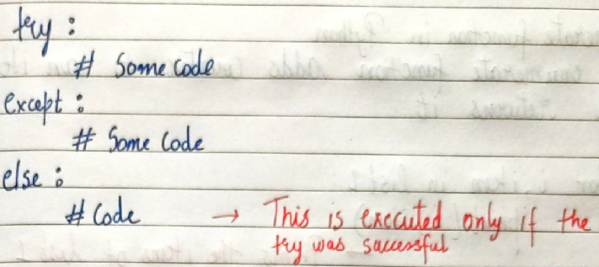 try :
# Some code
except :
# Some Code
else :
# Code → This is executed only if the
try was successful